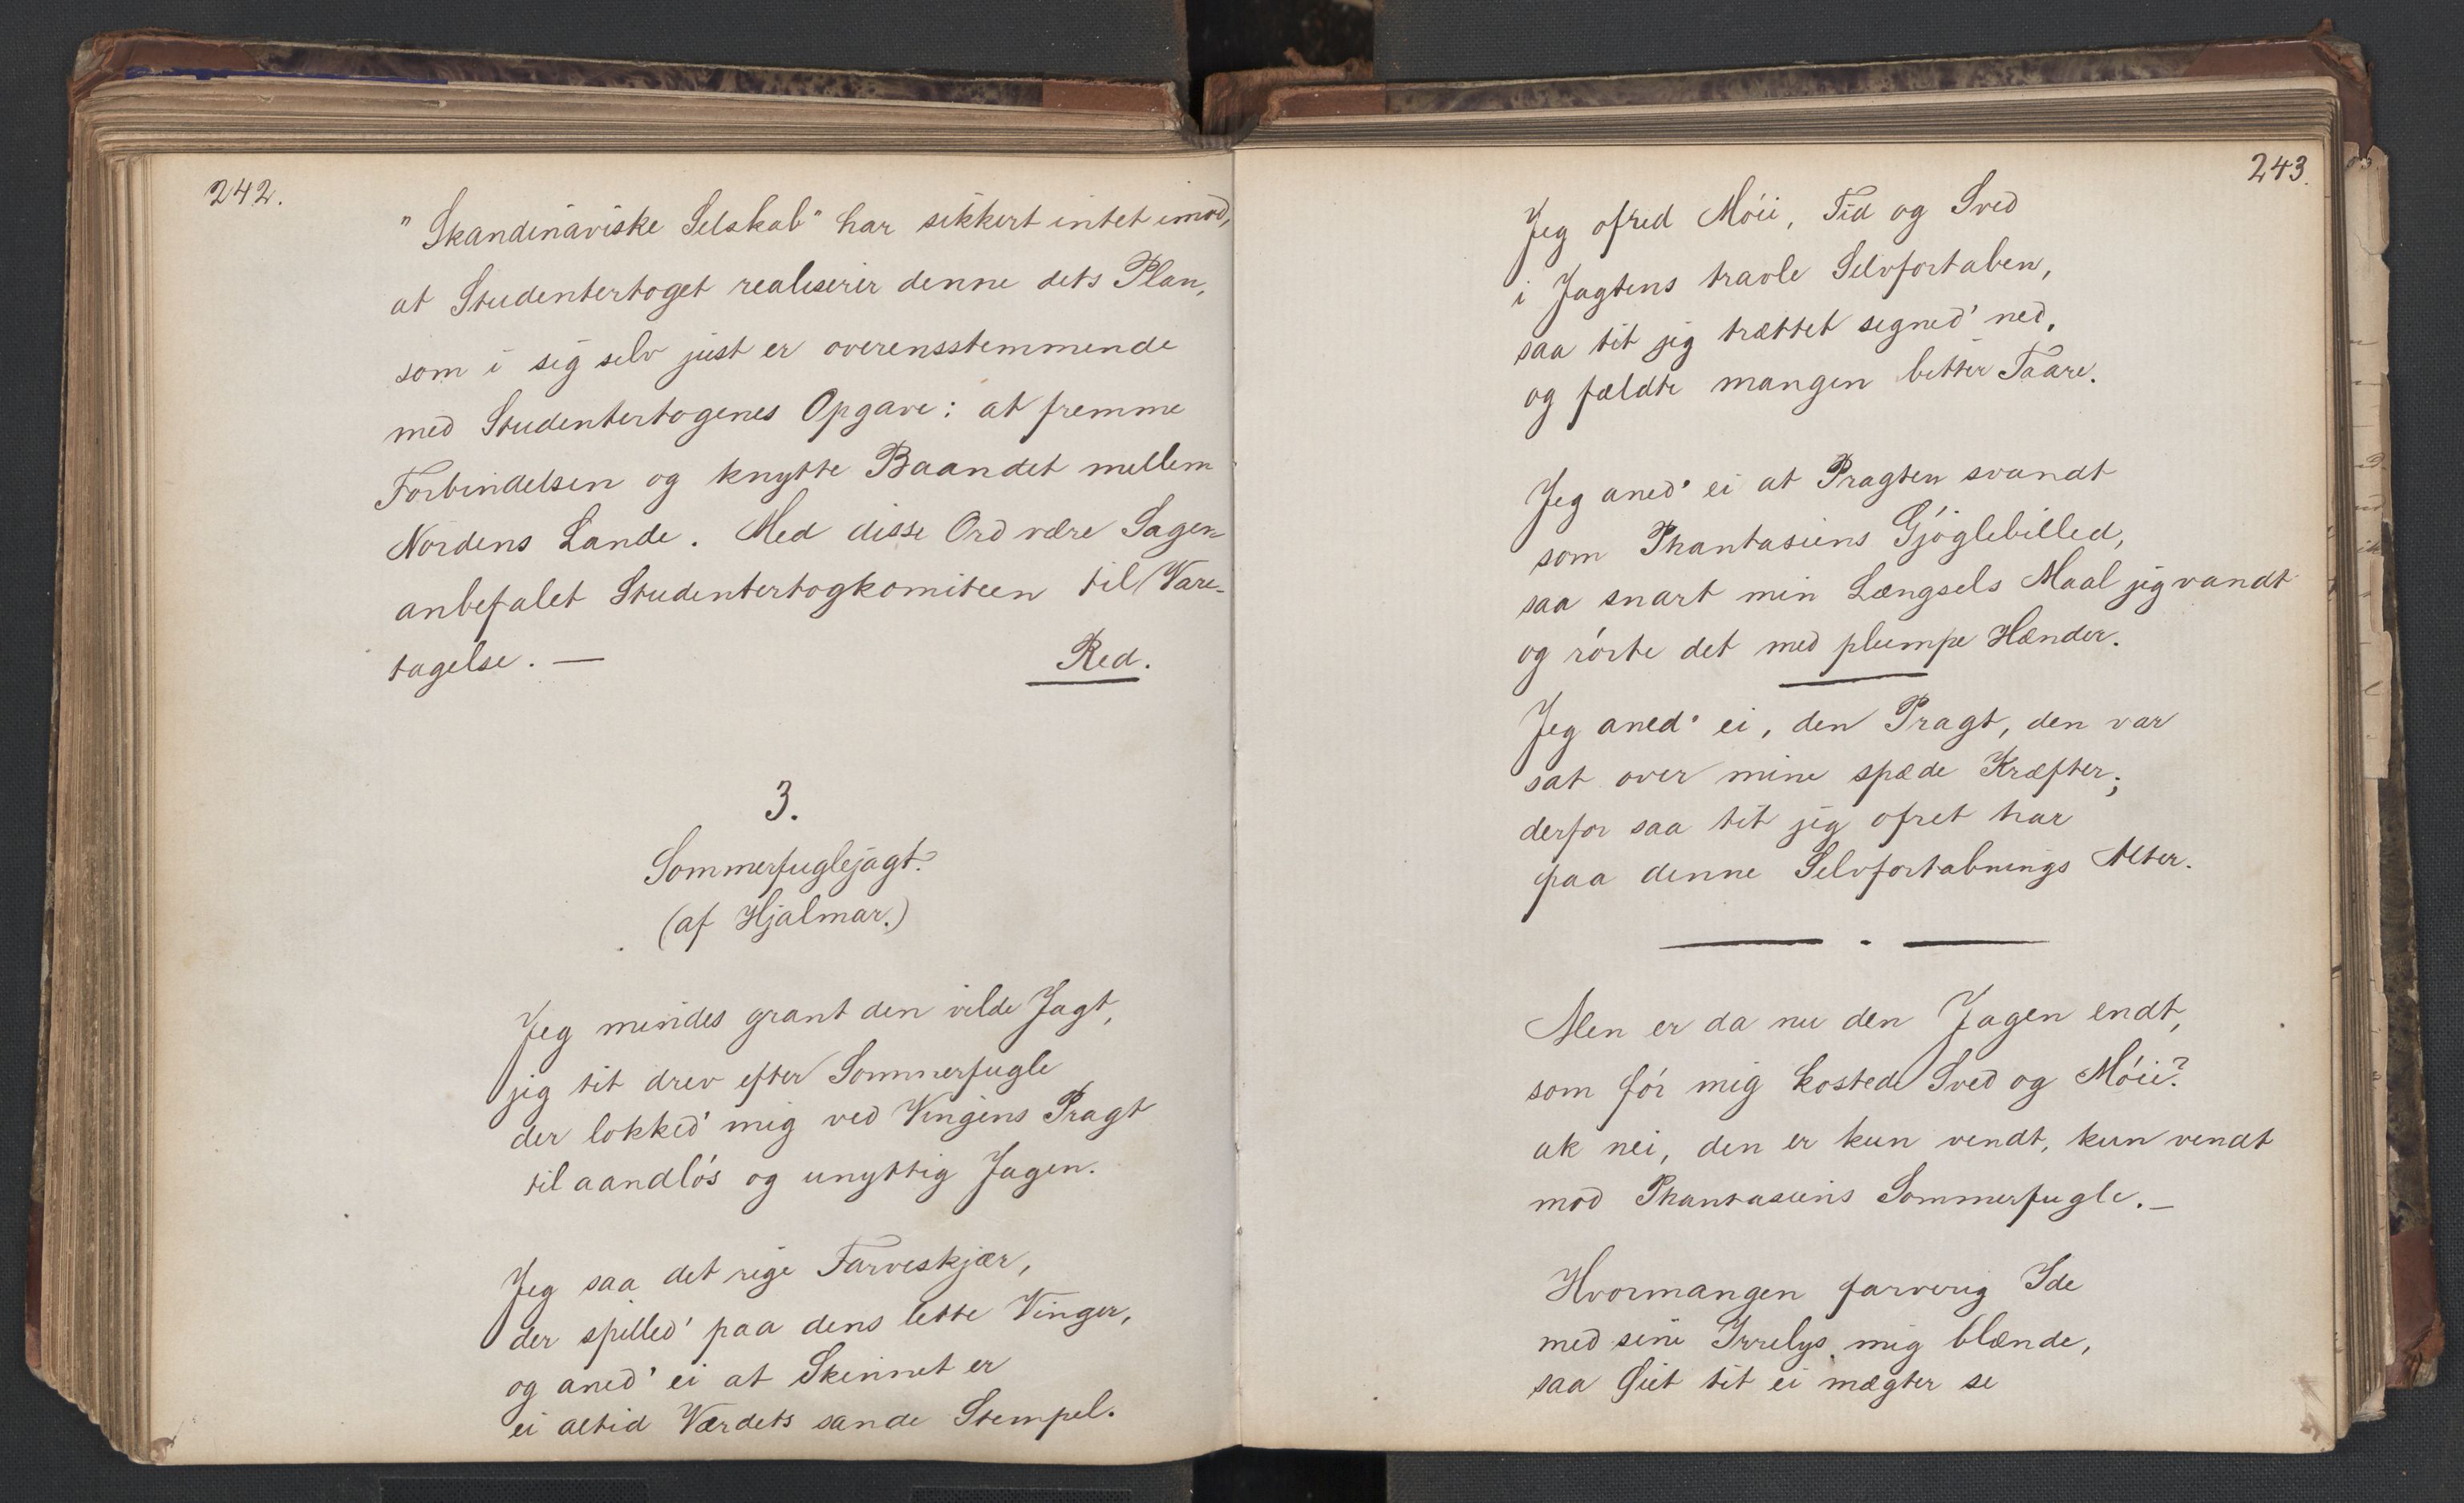 242.
"Skandinaviske Selskab" har sikkert intet imod,
at Studentertoget realiserer denne dets Plan,
som i sig selv just er overensstemmende
med Studentertogenes Opgave: at fremme
Forbindelsen og knytte Baandet mellem
Nordens Lande. Med disse Ord være Sagen
anbefalet Studentertogkomiteen til Vare-
tagelse. —
Red.
3.
Sommerfuglejagt.
(af Hjalmar.)
Jeg mindes grant den vilde Jagt,
jeg tit drev efter Sommerfugle
der lokked' mig ved Vingens Pragt
til aandløs og unyttig Jagen.
Jeg saa det rige Farveskjær,
der spilled' paa dens lette Vinger,
og aned' ei at Skinnet er
ei altid Værdets sande Stempel.
243.
Jeg ofred Møie, Tid og Sved
i Jagtens travle Selvfortaben,
saa tit jeg trættet segned' ned,
og fældte mangen bitter Taare.
Jeg aned' ei at Pragten svandt
som Phantasiens Gjøglebilled,
saa snart min Længsels Maal jeg vandt
og rørte det med plumpe Hænder.
Jeg aned' ei, den Pragt, den var
sat over mine spæde Kræfter;
derfor saa tit jeg ofret har
paa denne Selvfortabnings Alter.
Men er da nu den Jagen endt,
som før mig kosted Sved og Møie?
ak nei, den er kun vendt, kun vendt
mod Phantasiens Sommerfugle. —
Hvormangen farverig Ide
med sine Irrelys mig blænde,
saa Øiet tit ei mægter se